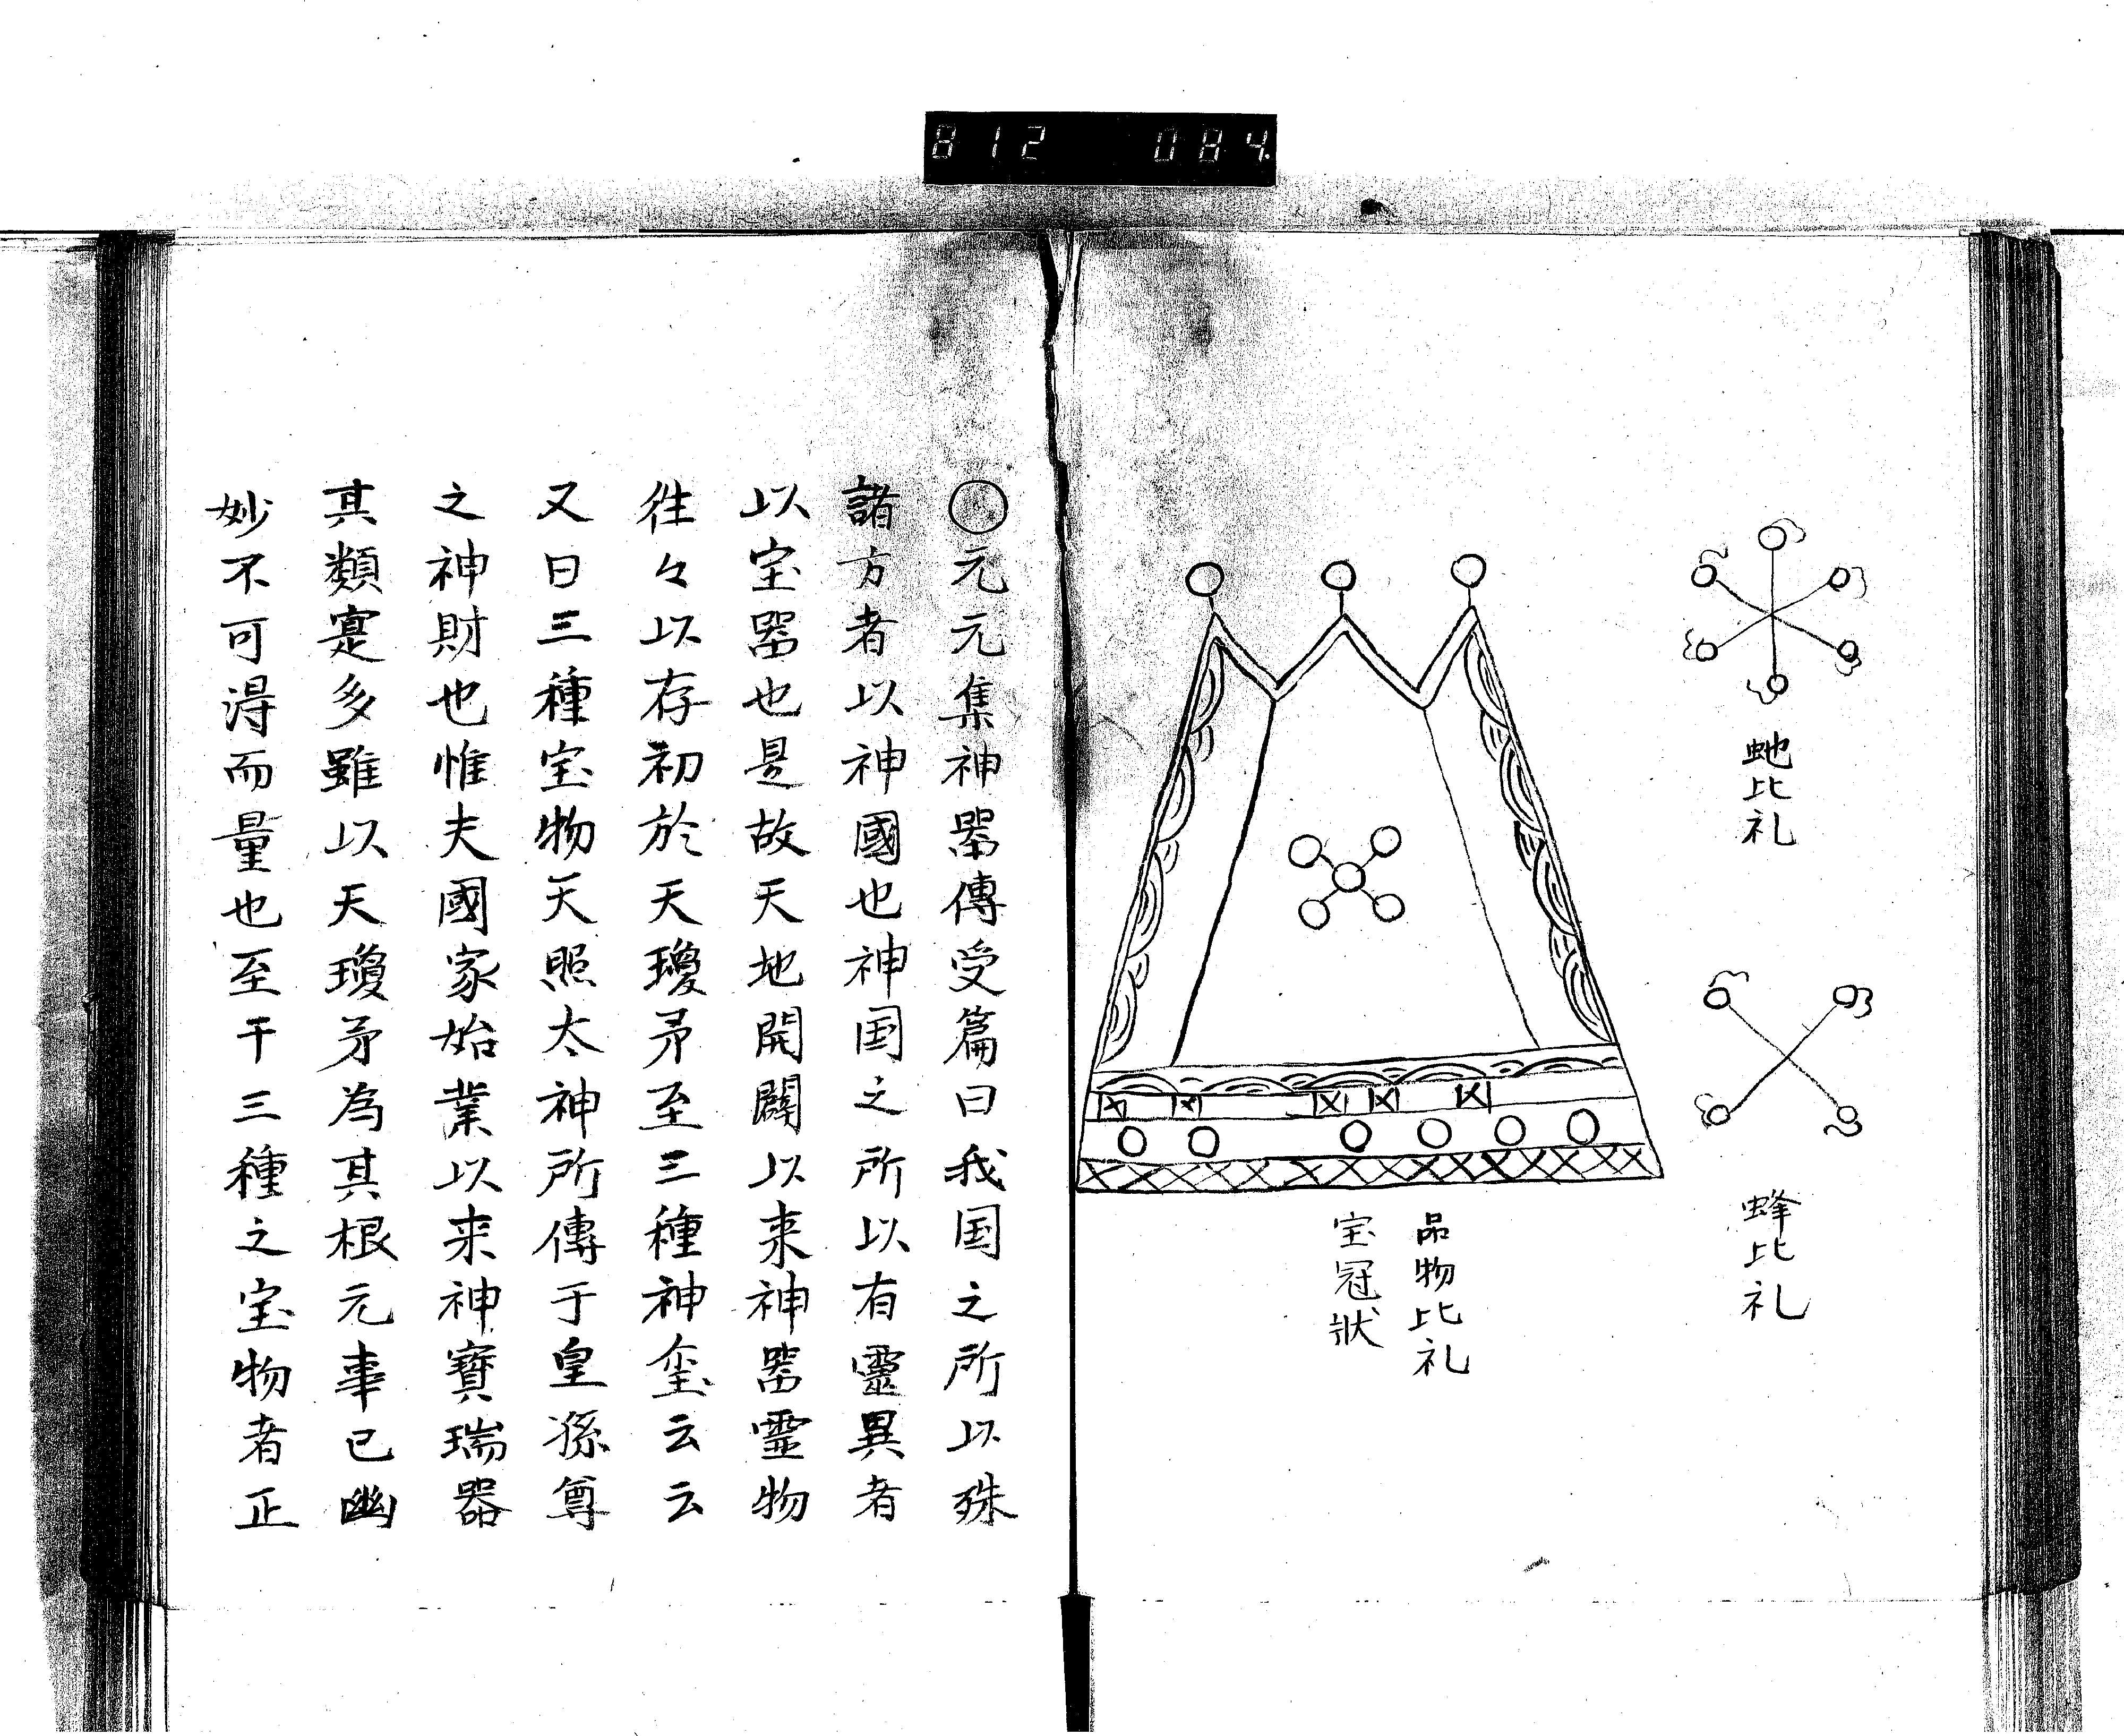 812 084.
蛇比礼
蜂比礼
品物比礼
宝冠状
〇元元集神噐傳受篇曰我国之所以殊
諸方者以神國也神国之所以有靈異者
以宝噐也是故天地開闢以来神噐靈物
往々以存初於天瓊矛至三種神玺云云
又曰三種宝物天照太神所傳于皇孫尊
之神財也惟夫國家始業以来神寶瑞器
其類寔多雖以天瓊矛為其根元事已幽
妙不可淂而量也至于三種之宝物者正